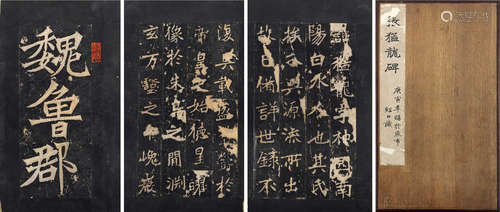 張猛龍碑
諱猛龍字神冏南
陽白水人也其氏
族分興源流所出
故已備詳世錄不
復具載盛於
帝皇之始德星曜
像於朱鳥之間淵
玄万壑之嵬巖
魏魯郡